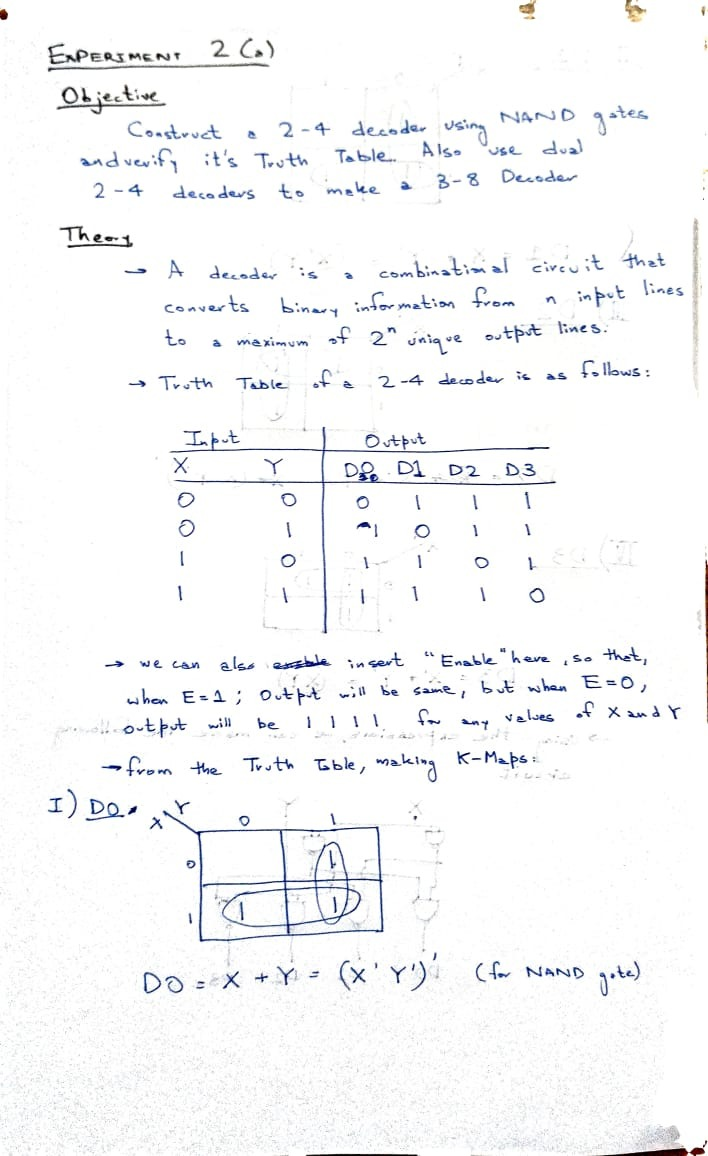 EXPERIMENT 2 (a)
Objective
Construct a 2-4 decoder using NAND gates
and verify it's Truth Table. Also use dual
2-4 decoders to make a 3-8 Decoder
Theory
→ A decoder is a combinational circuit that
converts binary information from n input lines
to a maximum of 2ⁿ unique output lines.
→ Truth Table of a 2-4 decoder is as follows:
Input Output
X Y D0 D1 D2 D3
0 0 0 1 1 1
0 1 1 0 1 1
1 0 1 1 0 1
1 1 1 1 1 0
→ we can also insert "Enable" here, so that,
when E=1; Output will be same, but when E=0,
output will be 1 1 1 1 for any values of X and Y
→ from the Truth Table, making K-Maps:
I) D0
X Y 0 1
0 1
1 1 1
D0 = X + Y = (X' Y')' (for NAND gate)